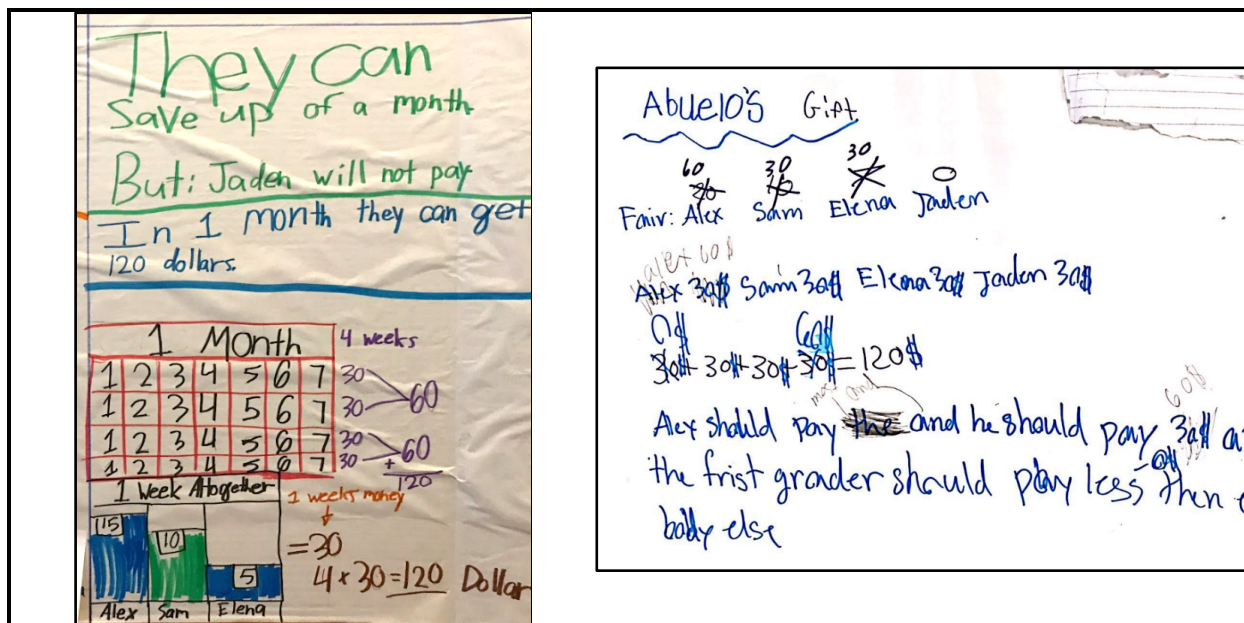 They can
Save up of a month
But: Jaden will not pay
In 1 month they can get
120 dollars.
1 Month 4 weeks
1 2 3 4 5 6 7 30
1 2 3 4 5 6 7 30 60
1 2 3 4 5 6 7 30
1 2 3 4 5 6 7 30 60
+
120
1 Week Altogether
1 weeks money
15 10 5
=30
4 × 30 = 120 Dollar
Alex Sam Elena
Abuelo's Gift
60 30 30 0
Fair: Alex Sam Elena Jaden
60$
Alex 30$ Sam 30$ Elena 30$ Jaden 30$
0$ 60$
30$+ 30$+ 30$+ 30$ = 120$
most and 60$
Alex should pay the and he should pay 30$
0$
the frist grader should play less then
body else